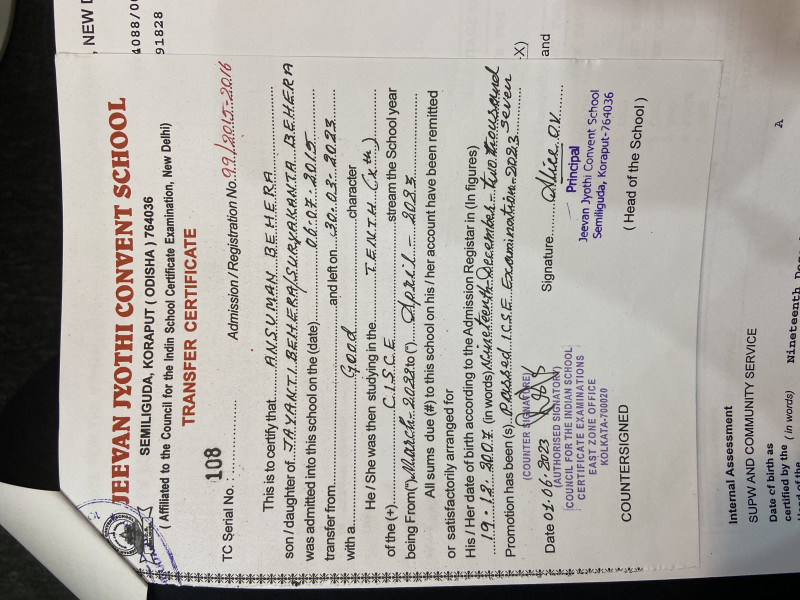 JEEVAN JYOTHI CONVENT SCHOOL
SEMILIGUDA, KORAPUT ( ODISHA ) 764036
( Affiliated to the Council for the Indin School Certificate Examination, New Delhi)
TRANSFER CERTIFICATE
TC Serial No. : 108 Admission / Registration No. 99/2015-2016
This is to certify that ANSUMAN BEHERA
son / daughter of JAYANTI BEHERA/SURYAKANTA BEHERA
was admitted into this school on the (date) 06.07.2015
transfer from and left on 30.03.2023
with a Good character
He / She was then studying in the TENTH (Xth)
of the (+) C.I.S.C.E stream the School year
being From(*) March-2022 to (*) April - 2023
All sums due (#) to this school on his / her account have been remitted
or satisfactorily arranged for
His / Her date of birth according to the Admission Registar in (In figures)
19.12.2007 (in words) Nineteenth-December-Two thousand seven
Promotion has been (s) Passed I.C.S.E Examination-2023
Date 01.06.2023 Signature Alice D.V.
(COUNTER SIGNATURE)
(AUTHORISED SIGNATORY)
COUNCIL FOR THE INDIAN SCHOOL
CERTIFICATE EXAMINATIONS
EAST ZONE OFFICE
KOLKATA-700020
Principal
Jeevan Jyothi Convent School
Semiliguda, Koraput-764036
COUNTERSIGNED ( Head of the School )
, NEW D
4088/0
91828
-X)
and
Internal Assessment
SUPW AND COMMUNITY SERVICE A
Date of birth as
certified by the ( in words) Nineteenth